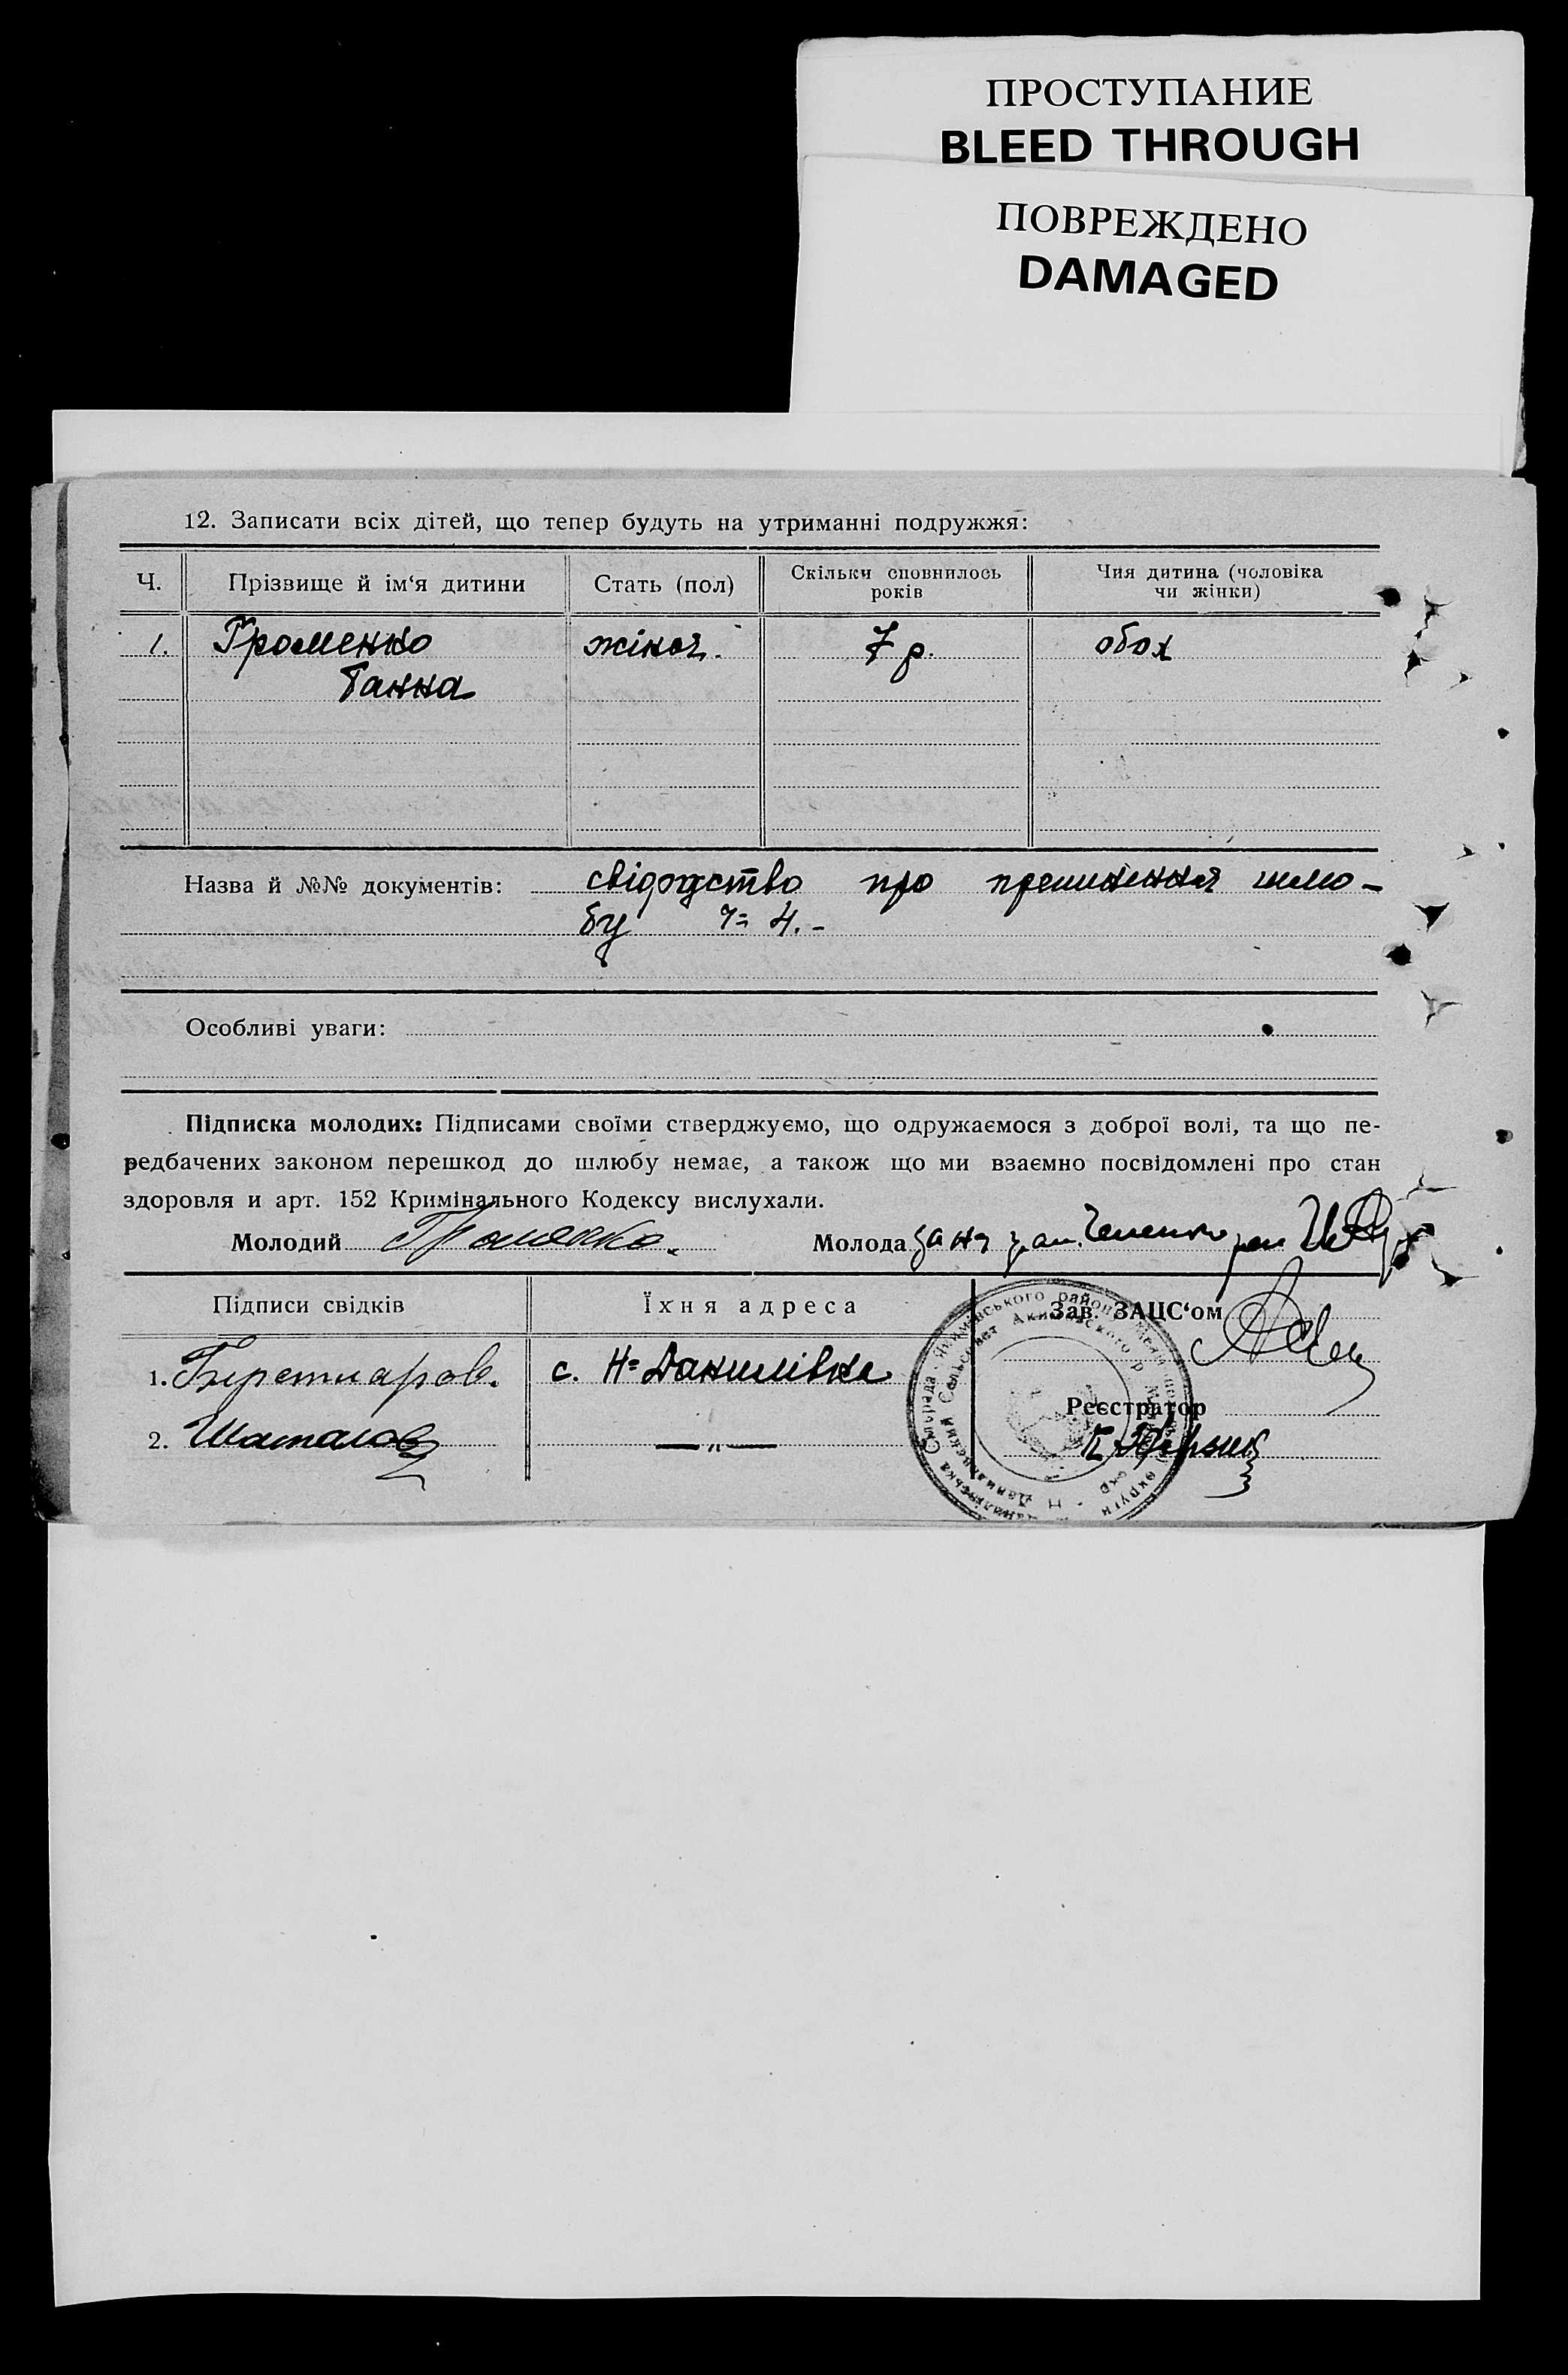 ПРОСТУПАНИЕ
BLEED THROUGH
ПОВРЕЖДЕНО
DAMAGED
12. Записати всіх дітей, що тепер будуть на утриманні подружжя:
Ч. Прізвище й ім‘я дитини Стать (пол) Скільки сповнилось років Чия дитина (чоловіка чи жінки)
1. Громенко жіноя. 7 р. обох
Ганна
Назва й №№ документів: свідоцтво про припинення шлю-
бу ч= 4.-
Особливі уваги:
Підписка молодих: Підписами своїми стверджуємо, що одружаємося з доброї волі, та що пе-
редбачених законом перешкод до шлюбу немає, а також що ми взаємно посвідомлені про стан
здоровля и арт. 152 Кримінального Кодексу вислухали.
Молодий Громенко. Молода
Підписи свідків Їхня адреса Зав. ЗАЦС‘ом
1. с. Н= Данилівка
Реєстратор
2. Шаталов — „ —